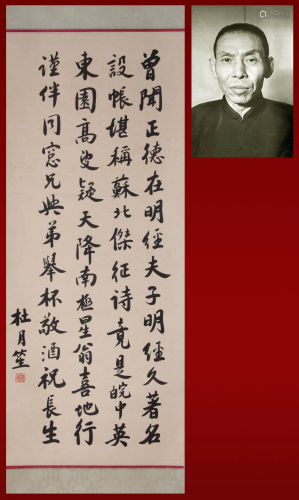 曾闻正德在明經夫子明經久著名
設帳堪稱蘇北傑征诗竟是皖中英
東園高叟疑天降南極星翁喜地行
謹伴同窓兄與弟舉杯敬酒祝長生
杜月笙